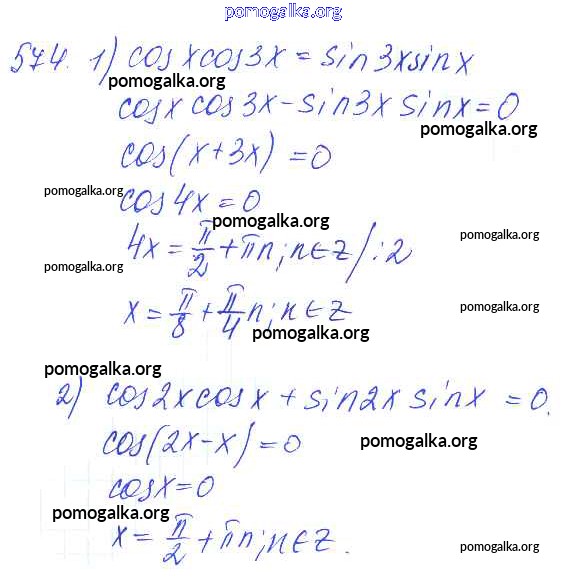 pomogalka.org
574. 1) cos x cos 3x = sin 3x sin x
pomogalka.org
cos x cos 3x - sin 3x sin x = 0
pomogalka.org
cos(x + 3x) = 0
pomogalka.org
cos 4x = 0
pomogalka.org
4x = π/2 + πn; n ∈ Z / : 2
pomogalka.org
pomogalka.org
x = π/8 + π/4 n; n ∈ Z
pomogalka.org
pomogalka.org
pomogalka.org
2) cos 2x cos x + sin 2x sin x = 0.
cos(2x - x) = 0
pomogalka.org
cos x = 0
pomogalka.org
x = π/2 + πn; n ∈ Z.
pomogalka.org